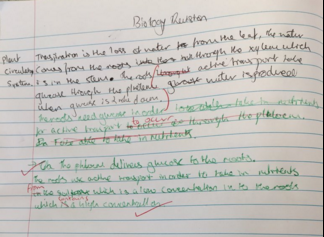 Biology Revision
Plant Transpiration is the loss of water from the leaf, the water
Circulatory comes from the roots through the xylem which
System is in the stem. The roots active transport take
glucose through the phloem, glucose water is produced
when glucose is broke down.
The roots need glucose in order to take in nutrients
for active transport through the phloem.
to take in nutrients.
The phloem delivers glucose to the roots.
The roots use active transport in order to take in nutrients
from the which is a low concentration to the roots
which is a high concentration